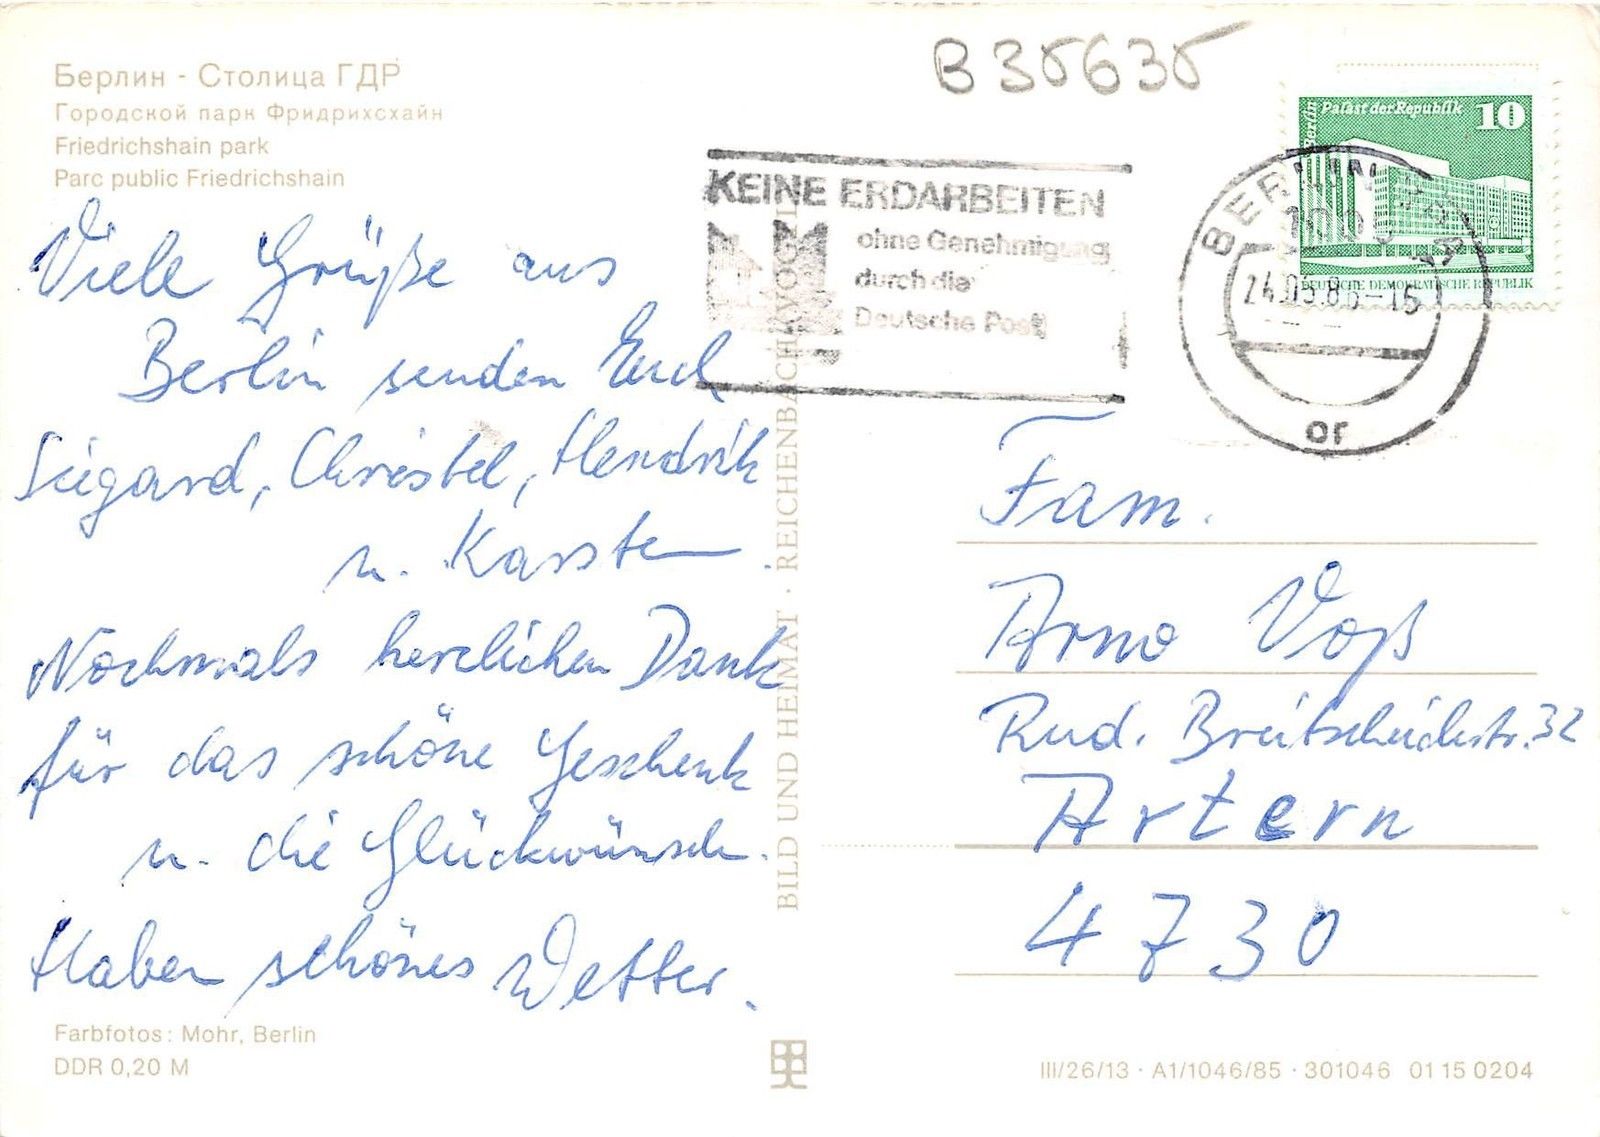 Берлин - Столица ГДР
Городской парк Фридрихсхайн
Friedrichshain park
Parc public Friedrichshain
Viele Grüße aus
Berlin senden Euch
Siegard, Christel, Hendrik
u. Karsten.
Nochmals herzlichen Dank
für das schöne Geschenk
u. die Glückwünsche.
Haben schönes Wetter.
Farbfotos: Mohr, Berlin
DDR 0,20 M
BILD UND HEIMAT · REICHENBACH (VOGTL
B 35635
KEINE ERDARBEITEN
ohne Genehmigung
durch die
Deutsche Post
Berlin Palast der Republik 10
DEUTSCHE DEMOKRATISCHE REPUBLIK
BERLIN
or
Fam.
Arno Voß
Rud. Breitscheidstr. 32
Artern
4730
III/26/13 · A1/1046/85 · 301046 01 15 0204